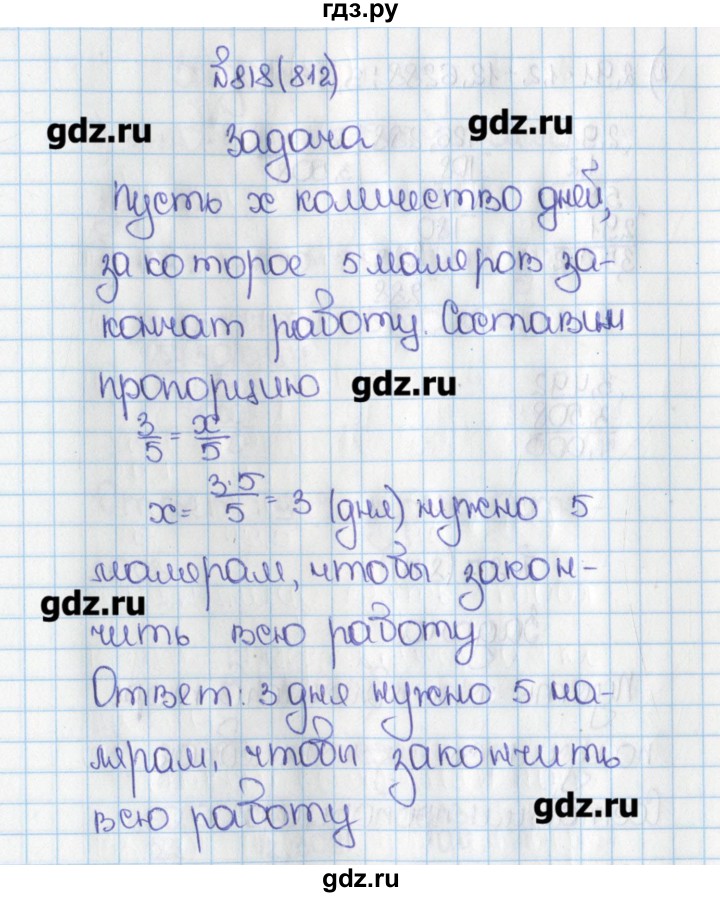 гдз.ру
№818(812)
gdz.ru
gdz.ru
задача
Пусть x количество дней,
за которое 5 маляров за-
кончат работу. Составим
пропорцию gdz.ru
3/5 = x/5
x = 3·5/5 = 3 (дня) нужно 5
малярам, чтобы закон-
gdz.ru
чить всю работу
Ответ: 3 дня нужно 5 ма-
лярам, чтобы закончить
всю работу gdz.ru
gdz.ru